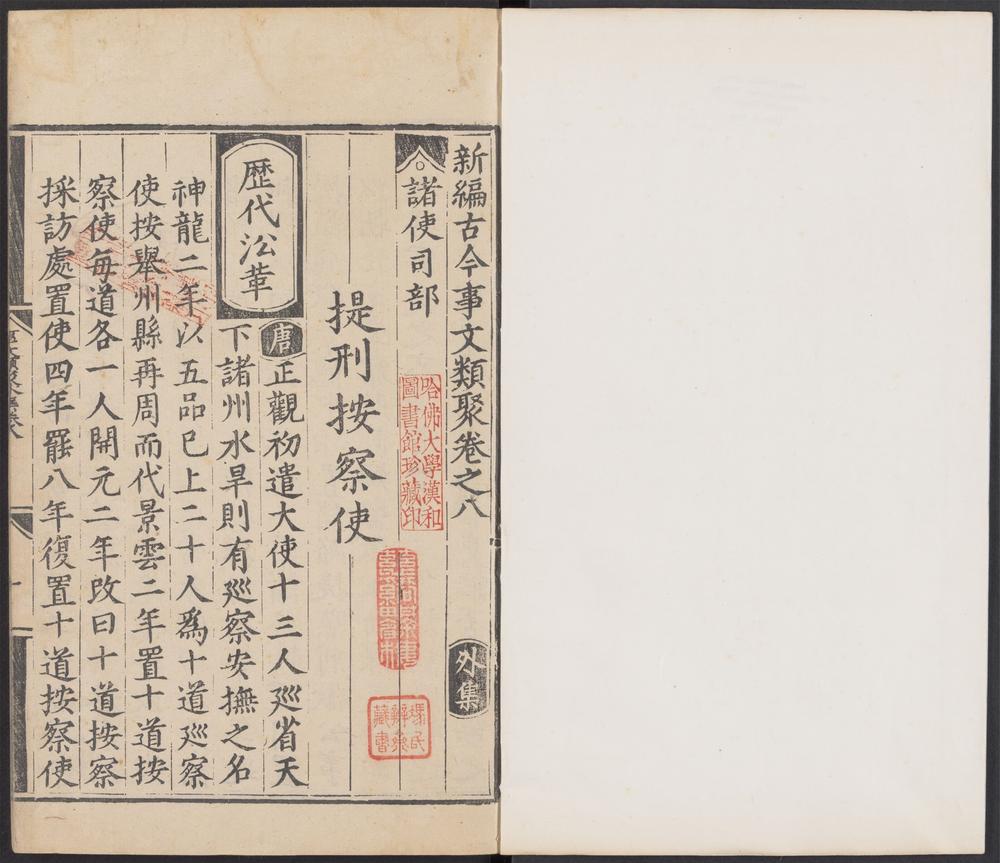 新編古今事文類聚卷之八
外集
諸使司部
提刑按察使
歷代㳂革
唐
正觀初遣大使十三人廵省天
下諸州水旱則有廵察安撫之名
神龍二年以五品已上二十人爲十道廵察
使按舉州縣再周而代景雲二年置十道按
察使每道各一人開元二年改曰十道按察
採訪處置使四年罷八年復置十道按察使
哈佛大學漢和
圖書館珍藏印
藏書